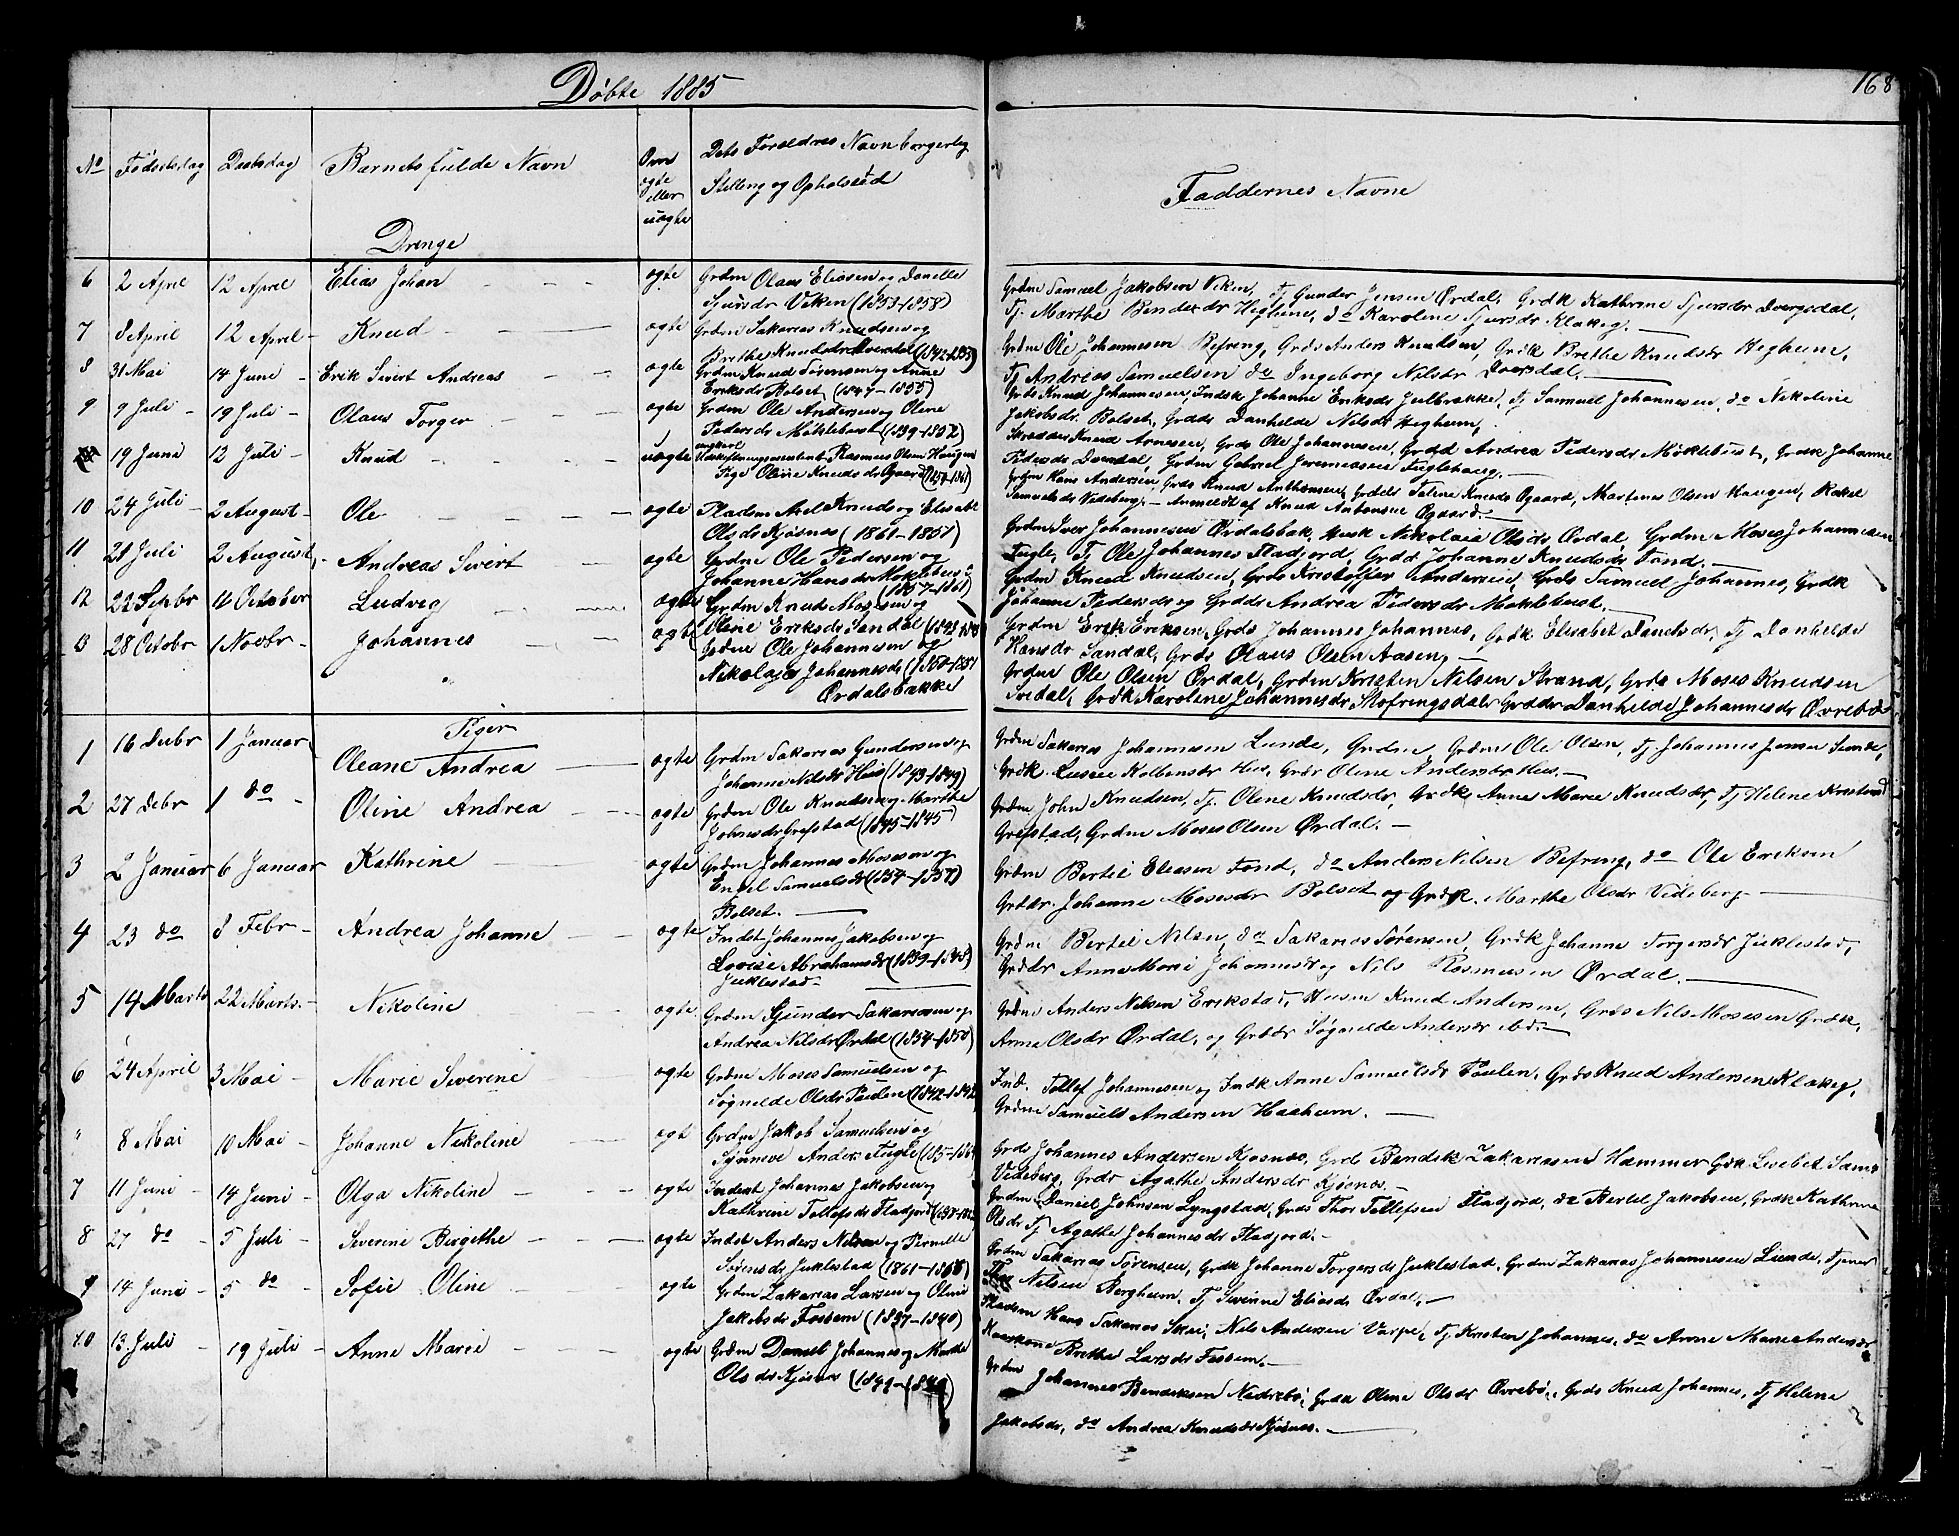 Døbte 1885
168
No
Fødselsdag
Daabsdag
Barnets fulde Navn
Om
ægte
eller
uægte
Dets Forældres Navn borgerlig
Stilling og Opholsted
Faddernes Navne
Drenge
6 2 April 12 April Elias Johan ægte Grdm Olaus Eliasen og Danelle
Sjursdr Viken (1853-1858)
Grdm Samuel Jakobsen Viken, Tj Gunder Jensen Ørdal, Grdk Kathrine Sjursdr Dvergsdal,
Tj. Marthe Bendexdr Hegheim, do Karoline Sjursdr Klakeg.
7 8 April 12 April Knud ægte Grdm Sakarias Knudsen og
Brethe Knudsdr
Grdm Ole Johannesen Befring, Grds Anders Knudsen, Grdk Brethe Knudsdr Hegheim,
Tj Andreas Samuelsen do Ingeborg Nilsdr
8 31 Mai 14 Juni Erik Sivert Andreas ægte Grdm Knud Sørensen og Anne
Eriksdr Bolset (1847-1855)
Grds Knud Johannesen, Indsk Johanne Eriksdr Julbakke, Tj Samuel Johannesen, do Nikoline
Jakobsdr. Bolset, Grdds Danhelde Nilsdr Hegheim,
9 9 Juli 19 Juli Olaus Torger ægte Grdm Ole Andersen og Oline
Pedersdr Møklebust (1839-1852)
Knud Arnesen, Grds Ole Johannesen, Grdd Andrea Pedersdr Møklebust, Grdk Johanne
Pedersdr Grdm Gabriel Jeremiassen Fuglehaug.
19 Juni 12 Juli Knud uægte Ungkarl Rasmus Olsen Haugen
Pige Oline Knudsdr Øgaard
Grdm Hans Andersen, Grds Knud Anthonsen, Grdds Taline Knudsd Øgaard, Martinus Olsen Haugen, Rakel
Samuelsdr Videberg. Anmeldt af Knud Antonsen Øgaard.
10 24 Juli 2 August Ole ægte Pladsm Axel Knuds og Elisabt
Olsdr Kjøsnes (1861-1857)
Grdm Iver Johannesen Ørdalsbak, Husk Nikolaia Olsdr Ørdal, Grdm Moses Johannesen
Fugle, Tj Ole Johannes Fladfjord, Grdd Johanne Knudsdr Fond.
11 21 Juli 2 August Andreas Sivert ægte Grdm Ole Pedersen og
Johanne Hansdr Møklebust
(1857-1861)
Grdm Knud Knudsen, Grds Kristoffer Andersen, Grds Samuel Johannes, Grdk
Johanne Pedersdr og Grdds Andrea Pedersdr Møklebust.
12 22 Septbr 4 October Ludvig ægte Grdm Knud Mosesen og
Oline Eriksdr Sandal
Grdm Erik Eriksen, Grds Johannes Johannes, Grdk Elisabet Danelsdr, Tj Danhelde
Hansdr Sandal, Grds Olaus Olsen Aasen,
13 28 Octobr 1 Novbr Johannes ægte Grdm Ole Johannesen og
Nikolaja Johannesdr (1850-1851
Ørdalsbakke
Grdm Ole Olsen Ørdal, Grdm Kristen Nilsen Strand, Grds Moses Knudsen
Svedal, Grdk Karoline Johannesdr Stofringsdal, Grddr Danhelde Johannesdr Øvrebø
Piger
1 16 Decbr 1 Januar Oleane Andrea ægte Grdm Sakarias Gundersen og
Johanne Nilsdr Hus (1843-1849)
Grdm Sakarias Johannesen Lunde, Grdm Ole Olsen, Tj Johannes Jensen Lunde,
Grdk. Lussie Kolbensdr Hus, Grdr Oline Andersdr Hus.
2 27 Debr 1 do Oline Andrea ægte Grdm Ole Knudsen og Marthe
Johnsdr Grefstad (1845-1845)
Grdm John Knudsen, Tj. Olene Knudsdr, Grdk Anne Marie Knudsdr, Tj Helene Kristensd
Grefstad, Grdm Moses Olsen Ørdal.
3 2 Januar 6 Januar Kathrine ægte Grdm Johannes Mosesen og
Engel Samuelsdr (1854-1857)
Bolset.
Grdm Bertil Eliasen Fond, do Anders Nilsen Befring, do Ole Eriksen
Grddr. Johanne Mosesdr Bolset og Grdk. Marthe Olsdr Videberg
4 23 do 8 Febr Andrea Johanne ægte Indst Johannes Jakobsen og
Lovise Abrahamsdr (1839-1848)
Juklestad
Grdm Bertil Nilsen, do Sakarias Sørensen, Grdk Johanne Torgersdr Juklestad,
Grddr Anne Marie Johannesdr og Nils Rasmusen Ørdal.
5 14 Marts 22 Marts. Nikoline ægte Grdm Gunder Sakariasen og
Andrea Nilsdr Ørdal (1854-1850)
Grdm Anders Nilsen Erikstad, Husm Knud Andersen, Grds Nils Mosesen Grdk,
Anna Olsdr Ørdal, og Grddr Søgnelde Andersdr ibd.
6 24 April 3 Mai Marie Severine ægte Grdm Moses Samuelsen og
Søgnelde Olsdr Paulen (1842-1842
Ind. Tollef Johannesen og Indk Anne Samuelsdr Paulen, Grds Knud Andersen Klakeg,
Grdm Samuels Andersen Haaheim.
" 8 Mai 10 Mai Johanne Nikoline ægt Grdm Jakob Samuelsen og
Sjønneve Anders Fugle
Grds Johannes Andersen Kosnes, Grds Bendik Zakariassen Hammer Grdk Livebet Sam
Videberg, Grdr Agathe Andersdr Kjøsnes.
7 11 Juni 14 Juni Olga Nikoline ægte Inderst Johannes Jakobsen og
Kathrine Tollefsdr Fladfjord
Grdm Daniel Johnsen Lyngstad, Grds Thor Tollefsen Fladfjord, do Bertel Jakobsen, Grdk Kathrine
Olsdr Tj Agathe Johannesdr Fladfjord.
8 27 do 5 Juli Severine Birgithe ægte Indst Anders Nilsen og Pernille
Sørensdr Juklestad (1861-1868)
Grdm Sakarias Sørensen, Grdk Johanne Torgersdr Juklestad, Grdm Zakarias Johannesen Lunde, Tjener
Nilsen Bergheim, Tj Sevrine Eliasdr Ørdal.
9 14 Juni 5 do Sofie Oline ægte Grdm Zakarias Larsen og Oline
Jakobsdr Fosheim (1837-1840)
Pladsm Hans Sakarias Skei, Nils Andersen Varpe, Tj Kristen Johannes, do Anne Marie Andersdr
Brethe Larsdr Fossem.
10 13 Juli 19 Juli Anne Marie ægte Grdm Daniel Johannes og Marthe
Olsdr Kjøsnes
Grdm Johannes Bendiksen Nedrebø, Grdk Oline Olsdr Øvrebø, Grds Knud Johannes, Tj Helene
Jakobsdr, do Andrea Knudsdr Kjøsnes.